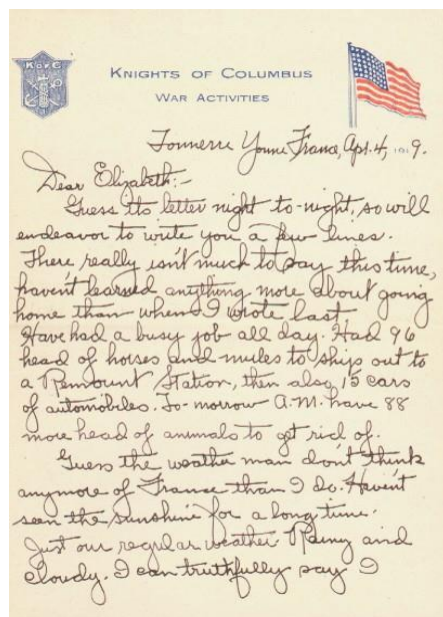 K of C
KNIGHTS OF COLUMBUS
WAR ACTIVITIES
Tonnerre Yonne France, Apr. 4, 1919.
Dear Elizabeth:-
Guess its letter night to-night, so will
endeavor to write you a few lines.
There really isn't much to say this time,
haven't learned anything more about going
home than when I wrote last.
Have had a busy job all day. Had 96
head of horses and mules to ship out to
a Remount Station, then also 15 cars
of automobiles. To-morrow A.M. have 88
more head of animals to get rid of.
Guess the weather man don't think
anymore of France than I do. Haven't
seen the sunshine for a long time.
Just our regular weather. Rainy and
cloudy. I can truthfully say I